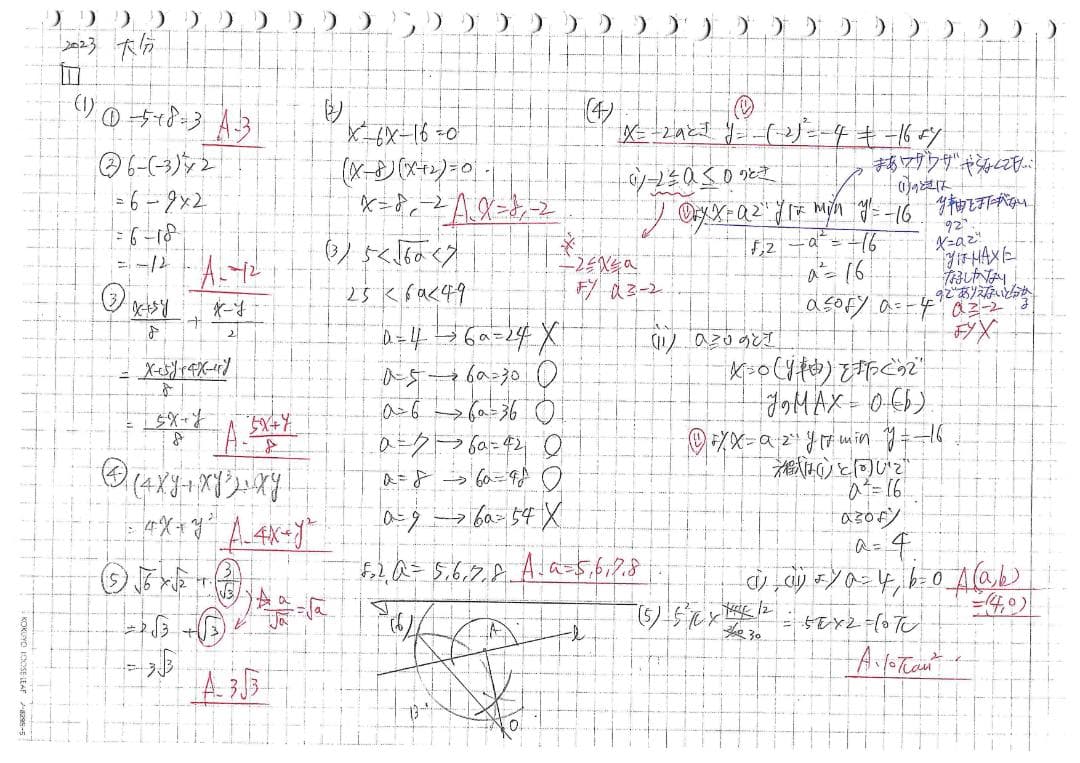 2023 大分
1
(1)
① -5+8=3 A. 3
② 6-(-3)²×2
=6-9×2
=6-18
=-12 A. -12
③ x+5y/8 + x-y/2
= x+5y+4x-4y/8
= 5x+y/8 A. 5x+y/8
④ (4xy+xy³)÷xy
= 4x+y² A. 4x+y²
⑤ √6×√2+3/√3
=2√3+√3
=3√3
a/√a=√a
A. 3√3
(2)
x²-6x-16=0
(x-8)(x+2)=0
x=8,-2 A. x=8,-2
(3) 5<√6a<7
25<6a<49
a=4→6a=24 X
a=5→6a=30 ○
a=6→6a=36 ○
a=7→6a=42 ○
a=8→6a=48 ○
a=9→6a=54 X
よって a=5,6,7,8 A. a=5,6,7,8
(6)
A
l
B
O
(4)
x=-2のとき y=-(-2)²=-4≠-16より
(i) -2≦a≦0のとき
よりx=aで yはmin y=-16
よって -a²=-16
a²=16
a≦0より a=-4
※
-2≦x≦a
より a≧-2
まあワザワザやらなくても..
(i)のときは
y軸をまたがない
ので
x=aで
yはMAXに
なるしかない
のでありえないと分かる
a≧-2
よりX
(ii) a≧0のとき
x=0(y軸)をまたぐので
yのMAX=0(=b)
よりx=aでyはmin y=-16
方程式は(i)と同じで
a²=16
a≧0より
a=4
(i),(ii)よりa=4,b=0 A(a,b)
=(4,0)
(5) 5²π× 12/30 =5π×2=10π
A. 10πcm²
KOKUYO LOOSE-LEAF